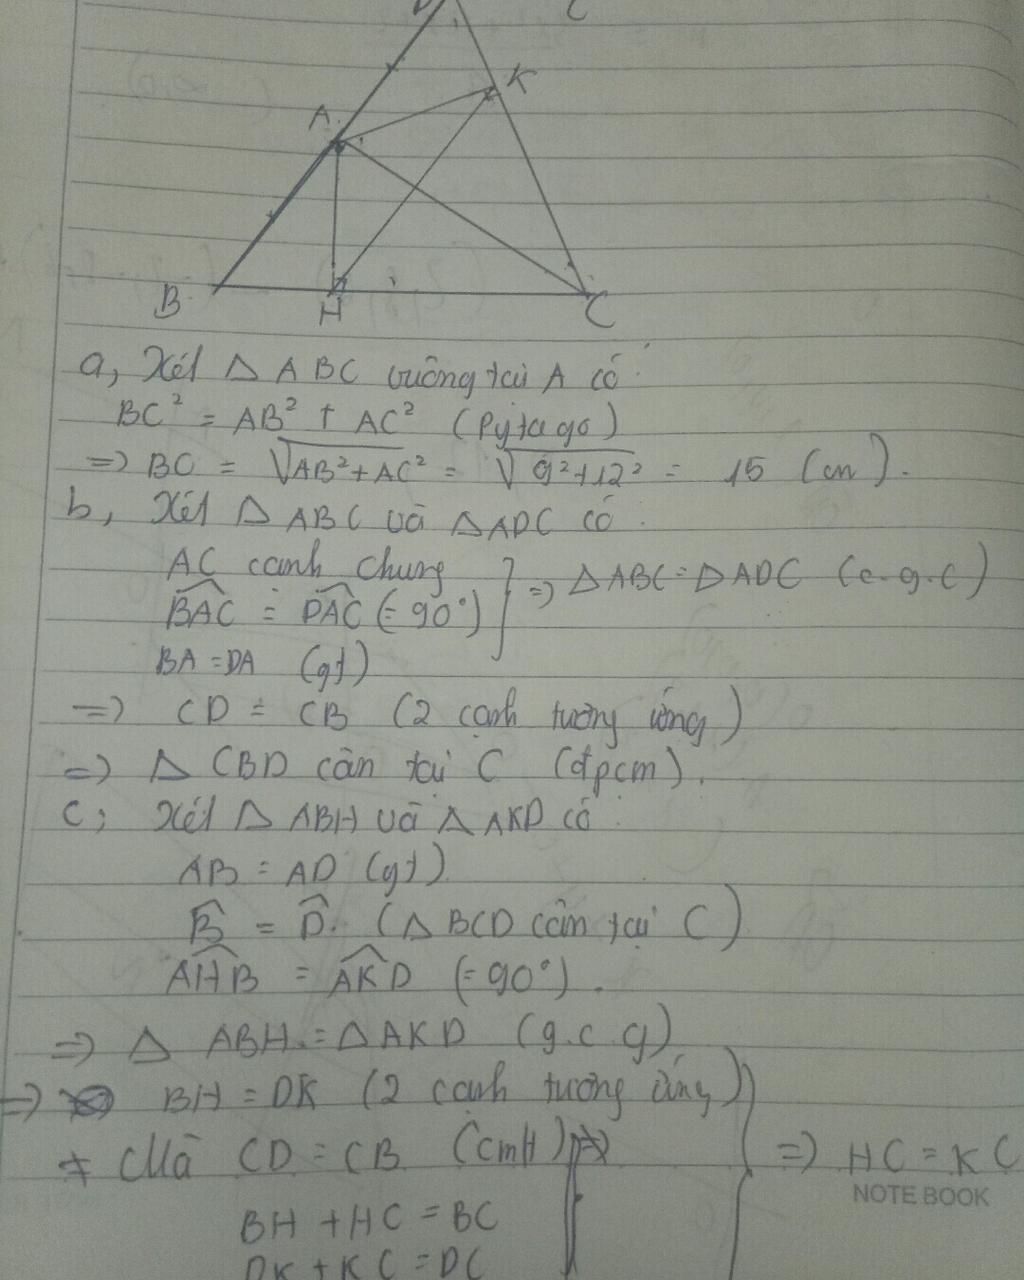 K
A
B
H
C
a, Xét Δ ABC vuông tại A có :
BC² = AB² + AC² (Pytago)
=> BC = √AB²+AC² = √9²+12² = 15 (cm).
b, Xét Δ ABC và Δ ADC có :
AC cạnh chung
BAC = DAC (= 90°) => Δ ABC = Δ ADC (c.g.c)
BA = DA (gt)
=> CD = CB (2 cạnh tương ứng)
=> Δ CBD cân tại C (đpcm).
c, Xét Δ ABH và Δ AKD có :
AB = AD (gt)
B = D. (Δ BCD cân tại C)
AHB = AKD (= 90°).
=> Δ ABH = Δ AKD (g.c.g)
=> BH = DK (2 cạnh tương ứng)
+ Mà CD = CB (cmt) => HC = KC
NOTE BOOK
BH + HC = BC
DK + KC = DC